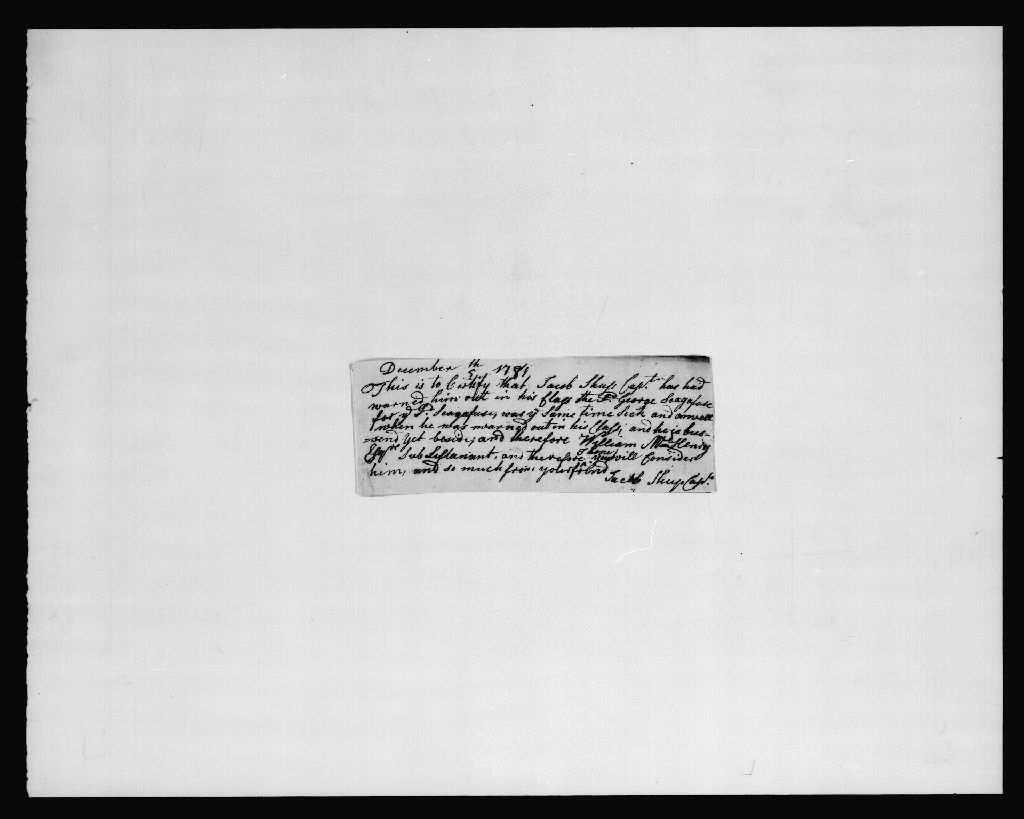 December 5th 1781
This is to Certify that Jacob Shup Capt has had
warned him out in his Class the Sd George Seagafuse
for ye Sd Seagafuse, was ye same time Sick and onwell
when he was warned out in his Class, and he is bus-
=send yet beside, and therefore William McHenry
Esqr Sub Leftanant, and therefore will Consider
him, and so much from your frind
Jacob Shup Capt